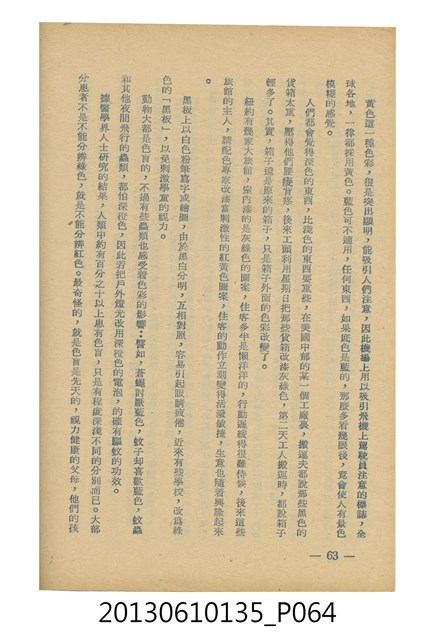 黃色這一種色彩，很是突出顯明，能吸引人們注意，因此機場上用以吸引飛機上駕駛員注意的標誌，全
球各地，一律都採用黃色。藍色可不適用，任何東西，如果底色是藍的，那麼多看幾眼後，竟會使人有景色
模糊的感覺。
人們都會覺得深色的東西，比淺色的東西要重些，在美國中部的某一個工廠裏，搬運夫都說那些黑色的
貨箱太重，壓得他們腰酸背疼，後來工頭利用星期日把那些貨箱改漆灰綠色，第二天工人搬運時，都說箱子
輕多了。其實，箱子還是原來的箱子，只是箱子外面的色彩改變了。
紐約有幾家大旅館，室內漆的是灰綠色的圖案，住客多半是懶洋洋的，行動遲緩得很難侍候，後來這些
旅館的主人，請配色專家改漆富刺激性的紅黃色圖案，住客的動作立刻變得活潑敏捷，生意也隨着興隆起來
。
黑板上以白色粉筆寫字或繪圖，由於黑白分明，互相對照，容易引起眼睛疲倦，近來有些學校，改爲綠
色的「黑板」，以免刺激學童的視力。
動物大都是色盲的，不過有些蟲類也感受着色彩的影響，譬如，蒼蠅討厭藍色，蚊子却喜歡藍色，蚊蟲
和其他夜間飛行的蟲類，都怕深橙色，因此若把戶外燈光改用深橙色的電泡，的確有驅蚊的功效。
據醫學界人士研究的結果，人類中約有百分之十以上患有色盲，只是有程度深淺不同的分別而已。大部
分患者不是不能分辨綠色，就是不能分辨紅色。最奇怪的，就是色盲是先天的，視力健康的父母，他們的孩
— 63 —
20130610135_P064